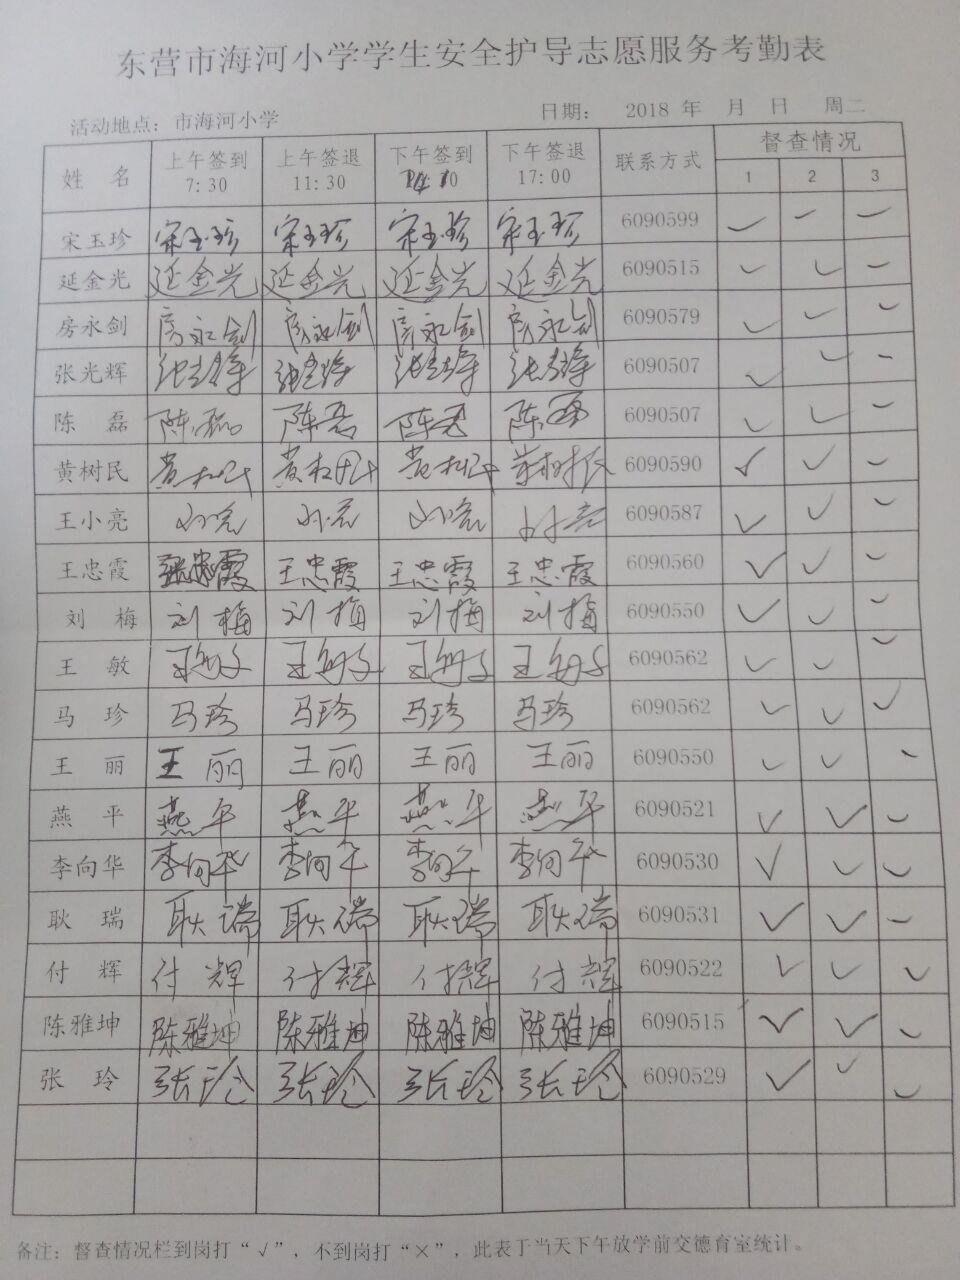 东营市海河小学学生安全护导志愿服务考勤表
活动地点：市海河小学 日期： 2018 年 月 日 周二
姓 名 上午签到 7:30 上午签退 11:30 下午签到 下午签退 17:00 联系方式 督查情况 1 2 3
宋玉珍 宋玉珍 宋玉珍 宋玉珍 宋玉珍 6090599
延金光 延金光 延金光 延金光 延金光 6090515
房永剑 房永剑 房永剑 房永剑 房永剑 6090579
张光辉 6090507
陈 磊 陈磊 陈磊 陈磊 陈磊 6090507
黄树民 6090590
王小亮 6090587
王忠霞 王忠霞 王忠霞 王忠霞 6090560
刘 梅 刘梅 刘梅 刘梅 刘梅 6090550
王 敏 王敏 王敏 王敏 王敏 6090562
马 珍 马珍 马珍 马珍 马珍 6090562
王 丽 王丽 王丽 王丽 王丽 6090550
燕 平 燕平 燕平 燕平 燕平 6090521
李向华 李向华 李向华 李向华 李向华 6090530
耿 瑞 耿瑞 耿瑞 耿瑞 耿瑞 6090531
付 辉 付辉 付辉 付辉 付辉 6090522
陈雅坤 陈雅坤 陈雅坤 陈雅坤 陈雅坤 6090515
张 玲 张玲 张玲 张玲 张玲 6090529
备注：督查情况栏到岗打“√”，不到岗打“×”，此表于当天下午放学前交德育室统计。